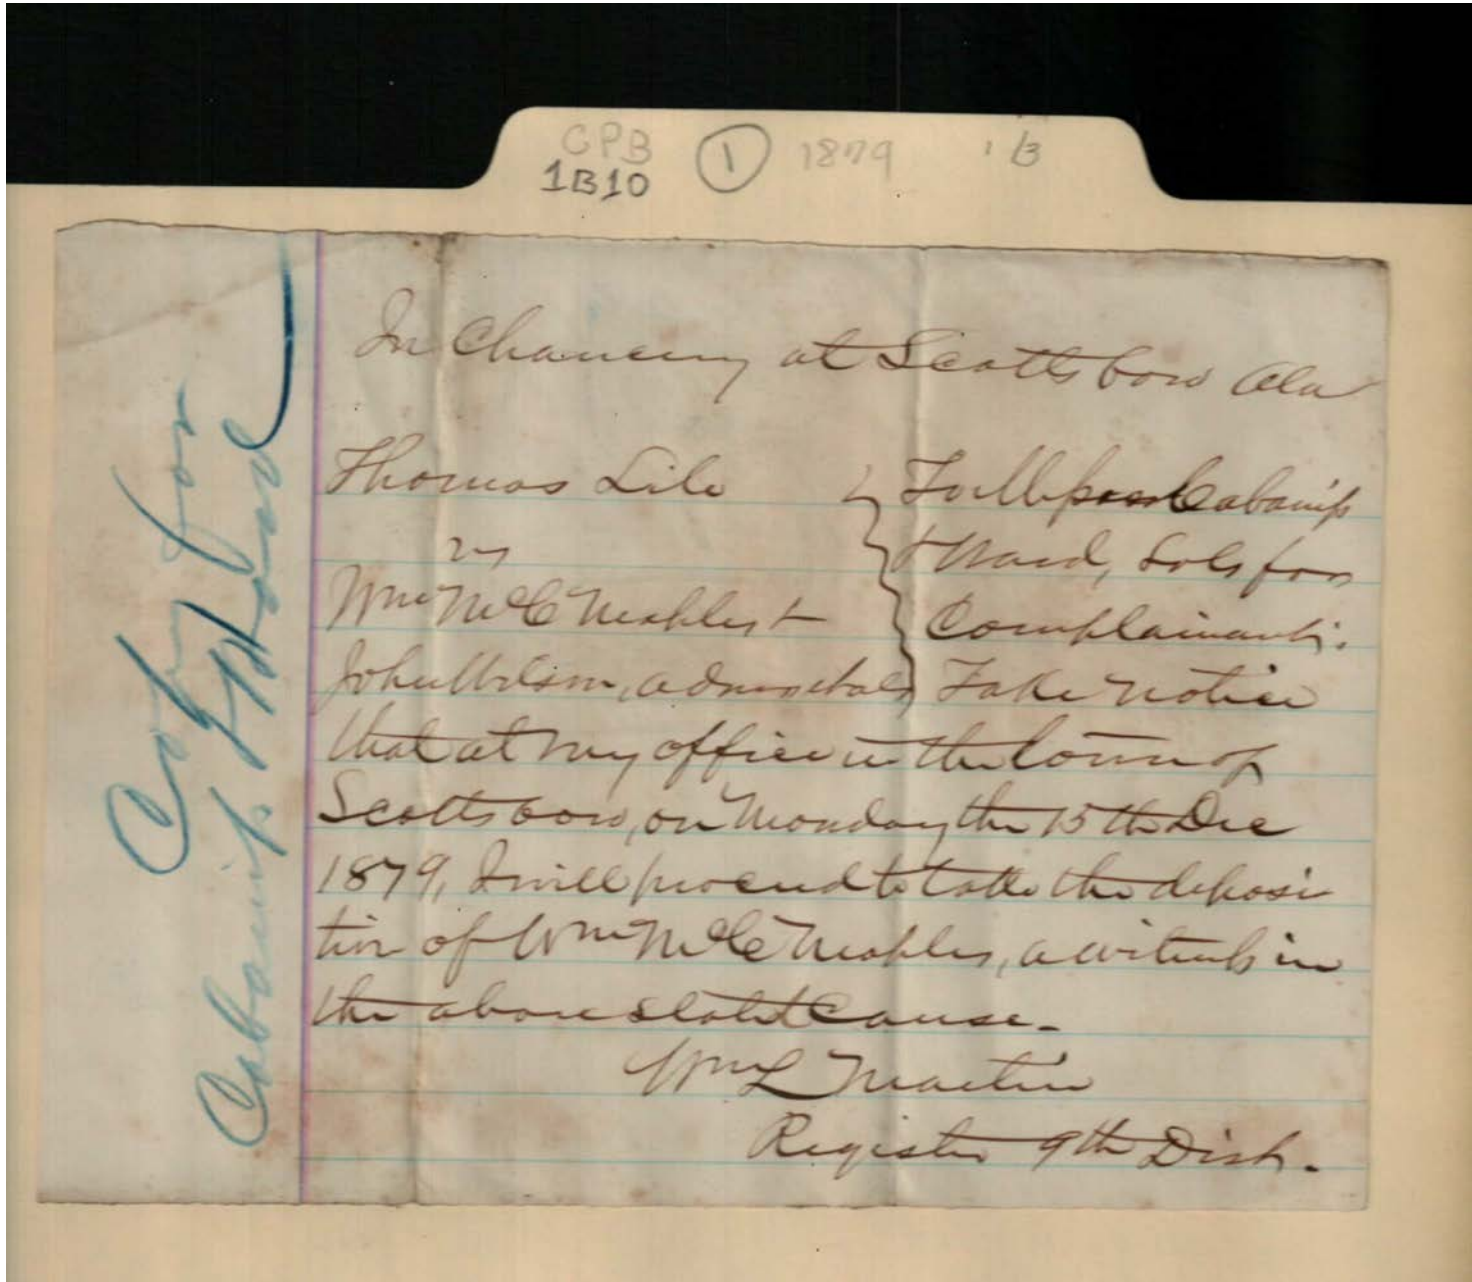 CPB
1B10
1 1879 1/3
In Chancery at Scottsboro Ala
Thomas Lile
vs
Wm McC Neahles +
John Wilson, adms et als
To Cabaniss
& Ward, Sols for
Complainants.
Take notice
that at my office in the town of
Scottsboro, on Monday the 15th Dec
1879, I will proceed to take the deposi
tion of Wm McC Neahles, a witness in
the above stated Cause.
Wm L Martin
Register 9th Dist.
Copy for
Cabaniss & Ward